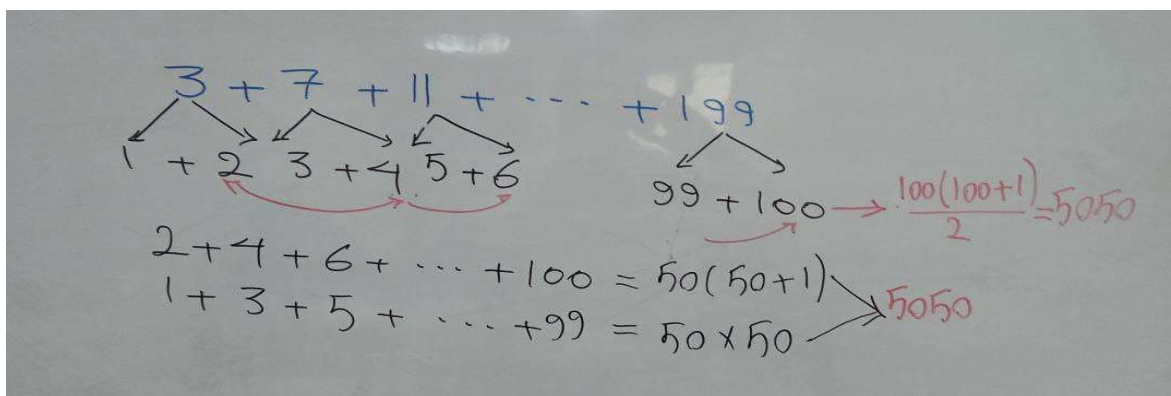 3 + 7 + 11 + ··· + 199
1 + 2 3 + 4 5 + 6 99 + 100 → 100(100+1)/2 = 5050
2 + 4 + 6 + ··· + 100 = 50(50+1)
1 + 3 + 5 + ··· + 99 = 50 × 50
5050